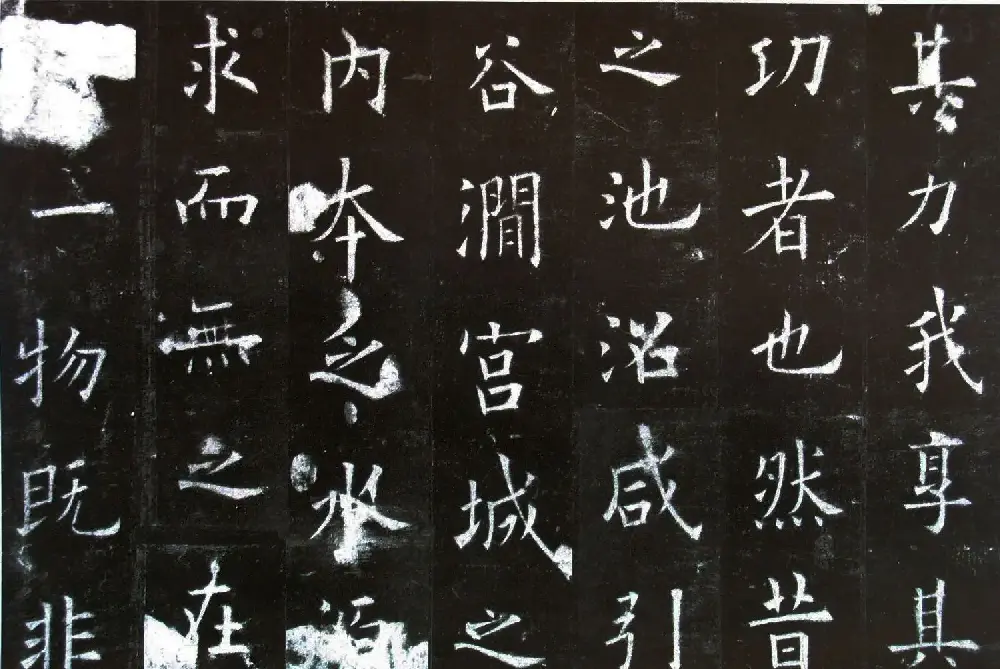 其力我享其
功者也然昔
之池沼咸引
谷澗宮城之
内本乏水源
求而無之在
一物既非